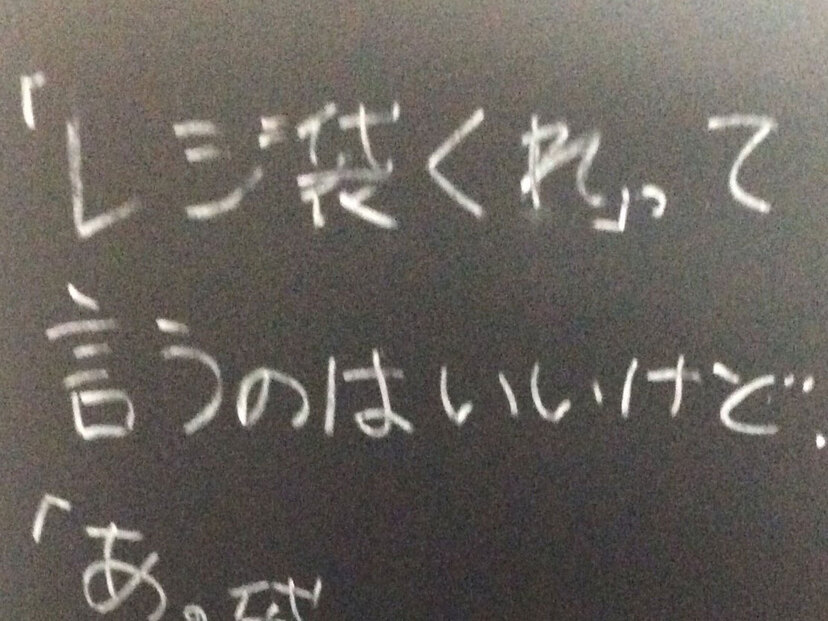 「レジ袋くれ」って
言うのはいいけど、
「あ。